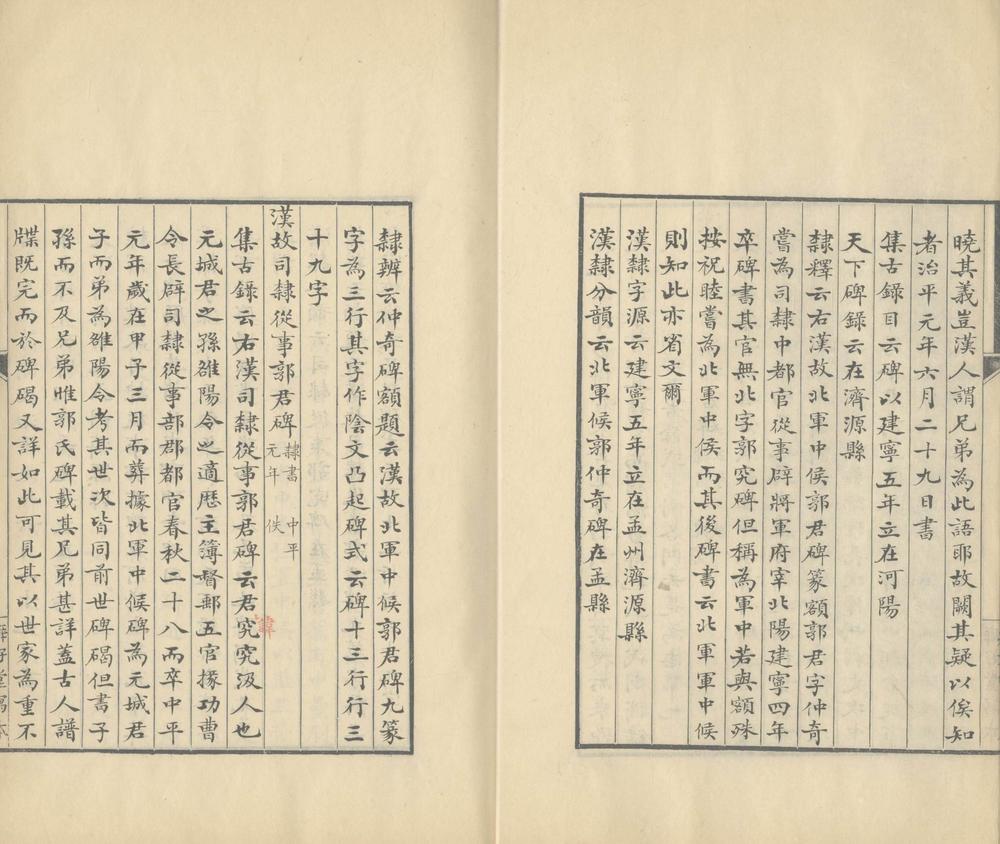 曉其義豈漢人謂兄弟為此語耶故闕其疑以俟知
者治平元年六月二十九日書
集古錄目云碑以建寧五年立在河陽
天下碑錄云在濟源縣
隸釋云右漢故北軍中侯郭君碑篆額郭君字仲奇
嘗為司隸中都官從事辟將軍府宰北陽建寧四年
卒碑書其官無北字郭究碑但稱為軍中若與額殊
按祝睦嘗為北軍中侯而其後碑書云北軍軍中候
則知此亦省文爾
漢隸字源云建寧五年立在孟州濟源縣
漢隸分韻云北軍候郭仲奇碑在孟縣
隸辨云仲奇碑額題云漢故北軍中候郭君碑九篆
字為三行其字作陰文凸起碑式云碑十三行行三
十九字
漢故司隸從事郭君碑 隸書 中平元年 佚
集古錄云右漢司隸從事郭君碑云君究究汲人也
諱
元城君之孫雒陽令之適歷主簿督郵五官掾功曹
令長辟司隸從事部郡都官春秋二十八而卒中平
元年歲在甲子三月而葬據北軍中候碑為元城君
子而弟為雒陽令考其世次皆同前世碑碣但書子
孫而不及兄弟惟郭氏碑載其兄弟甚詳蓋古人譜
牒既完而於碑碣又詳如此可見其以世家為重不